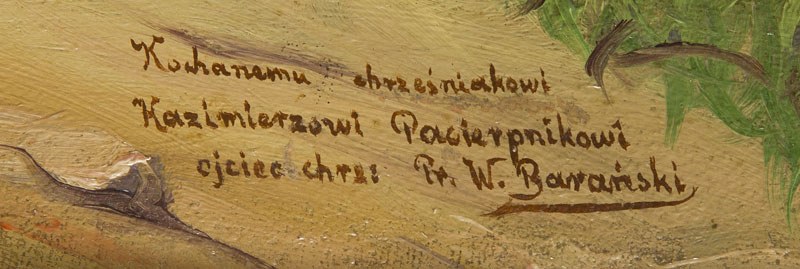 Kochanemu chrześniakowi
Kazimierzowi Pacierpnikowi
ojciec chrz: Fr. W. Barański